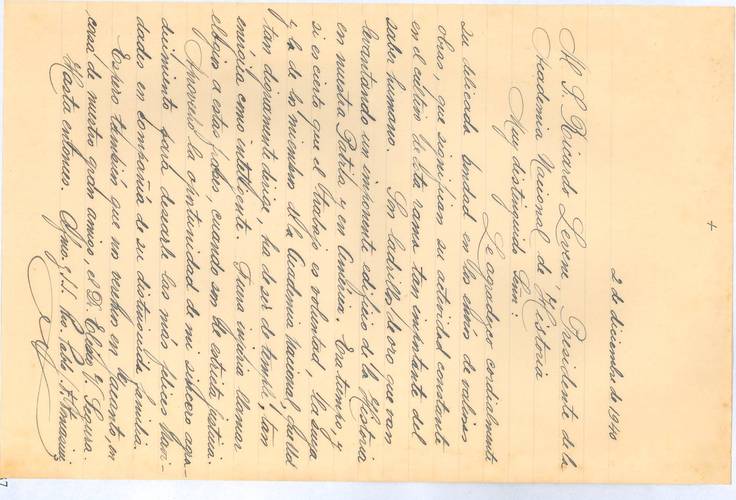 +
2 de diciembre de 1940
Al S. Ricardo Levene, Presidente de la
Academia Nacional de Historia
Muy distinguido Señor:
Le agradezco cordialmente
su delicada bondad en los envíos de valiosas
obras, que significan su actividad constante
en el cultivo de esta rama tan importante del
saber humano. Son ladrillos de oro que van
levantando un imponente edificio de la Historia
en nuestra Patria y en América. Era tiempo, y
si es cierto que el trabajo es voluntad, la suya
y la de los miembros de la Academia nacional, que Ud
tan dignamente dirige, ha de ser de temple, tan
enérgica como inteligente. Fuera injuria llamar
elogio a estas frases, cuando son de estricta justicia.
Aprovecho la oportunidad de mi sincero agra-
decimiento para desearle las más felices Navi-
dades en compañía de su distinguida familia.
Espero también que nos veremos en Enero, en la
casa de nuestro gran amigo, el D. Eliseo V. Segura.
Hasta entonces. Afmo. y S.S. Pbo. Pablo
57